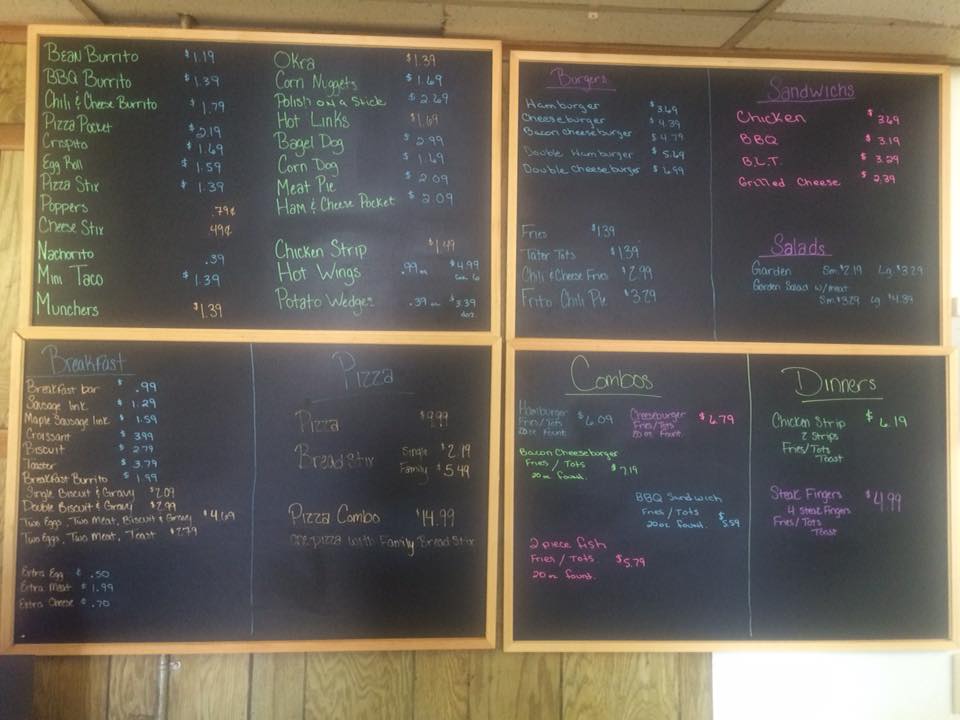 Bean Burrito $1.19
BBQ Burrito $1.39
Chili & Cheese Burrito $1.79
Pizza Pocket $2.19
Crispito $1.69
Egg Roll $1.59
Pizza Stix $1.39
Poppers .79¢
Cheese Stix 49¢
Nachorito .39
Mini Taco $1.39
Munchers $1.39
Okra $1.39
Corn Nuggets $1.69
Polish on a Stick $2.69
Hot Links $1.69
Bagel Dog $2.99
Corn Dog $1.69
Meat Pie $2.09
Ham & Cheese Pocket $2.09
Chicken Strip $1.49
Hot Wings .99 $4.99
Potato Wedges .39 $3.39
doz.
Burgers
Hamburger $3.69
Cheeseburger $4.39
Bacon Cheeseburger $4.79
Double Hamburger $5.69
Double Cheeseburger $6.99
Fries $1.39
Tater Tots $1.39
Chili & Cheese Fries $2.99
Frito Chili Pie $3.29
Sandwichs
Chicken $3.69
BBQ $3.19
B.L.T. $3.29
Grilled Cheese $2.39
Salads
Garden Sm $2.19 Lg. $3.29
Garden Salad w/meat
Sm $3.29 Lg $4.39
Breakfast
Breakfast bar $.99
Sausage link $1.29
Maple Sausage link $1.59
Croissant $3.99
Biscuit $2.79
Toaster $3.79
Breakfast Burrito $1.99
Single Biscuit & Gravy $2.09
Double Biscuit & Gravy $2.99
Two Eggs, Two Meat, Biscuit & Gravy $4.69
Two Eggs, Two Meat, Toast $2.79
Extra Egg $.50
Extra Meat $1.99
Extra Cheese $.70
Pizza
Pizza $9.99
Bread Stix Single $2.19
Family $5.49
Pizza Combo $14.99
one pizza with Family Bread Stix
Combos
Hamburger $6.09
Fries/Tots
20 oz Fount.
Cheeseburger $6.79
Fries/Tots
20 oz Fount.
Bacon Cheeseburger
Fries / Tots $7.19
20 oz fount.
BBQ Sandwich
Fries / Tots
20 oz fount. $5.59
2 piece fish
Fries / Tots $5.79
20 oz fount.
Dinners
Chicken Strip $6.19
2 Strips
Fries/Tots
Toast
Steak Fingers $4.99
4 Steak Fingers
Fries/Tots
Toast